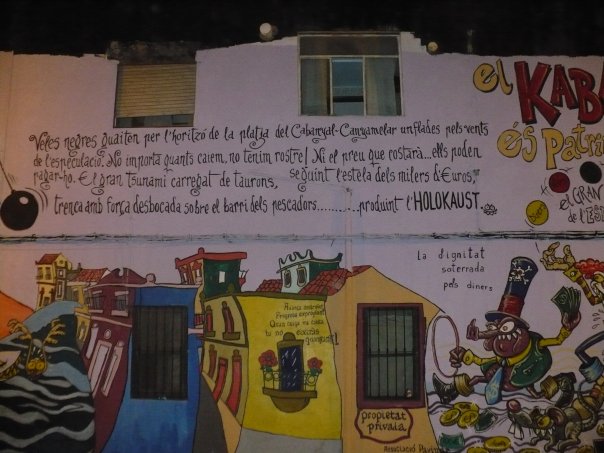 Veles negres guaiten per l'horitzó de la platja del Cabanyal-Canyamelar unflades pels vents
de l'especulació. No importa quants caiem, no tenim rostre! Ni el preu que costarà...ells poden
pagar-ho. El gran tsunami carregat de taurons, seguint l'estela dels milers d'€uros,
trenca amb força desbocada sobre el barri dels pescadors............produint l'HOLOKAUST.
el KABA
és Patrim
el GRAN
de l'ES
La dignitat
soterrada
pels diners
propietat
privada
Associació